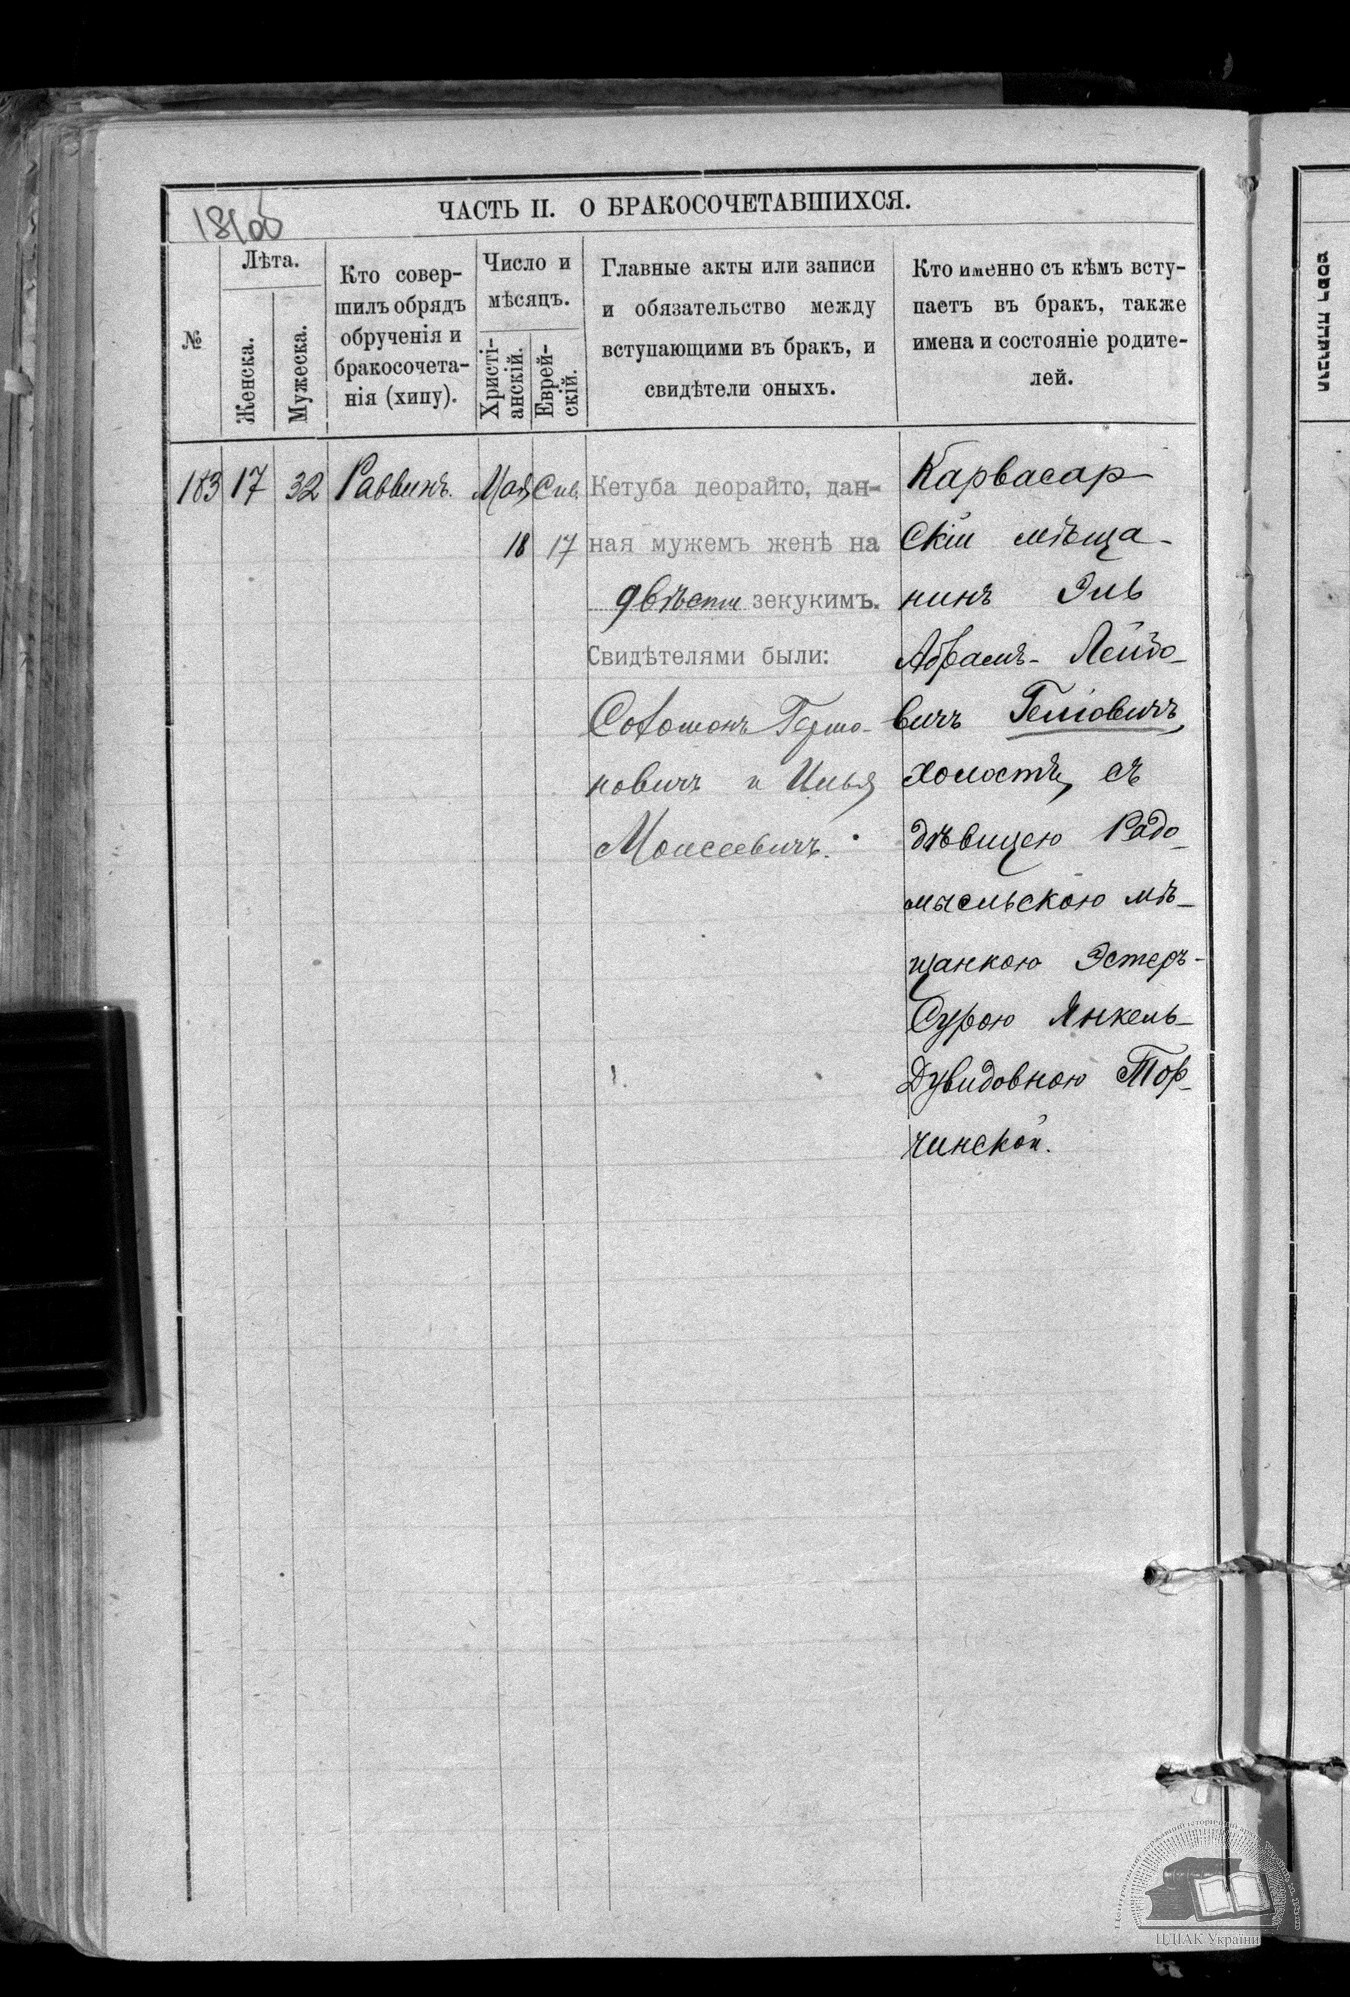 ЧАСТЬ II. О БРАКОСОЧЕТАВШИХСЯ.
№
Лѣта.
Женска.
Мужеска.
Кто совер-
шилъ обрядъ
обрученія и
бракосочета-
нія (хипу).
Число и
мѣсяцъ.
Христі-
анскій.
Еврей-
скій.
Главные акты или записи
и обязательство между
вступающими въ бракъ, и
свидѣтели оныхъ.
Кто именно съ кѣмъ всту-
паетъ въ бракъ, также
имена и состояніе родите-
лей.
183
17
32
Раввинъ.
Мая
18
Сив.
17
Кетуба деорайто, дан-
ная мужемъ женѣ на
двѣсти зекукимъ.
Свидѣтелями были:
Соломонъ Гершо-
новичъ и Илья
Моисеевичъ.
Карвасар
скій мѣща-
нинъ Эль
Абрамъ- Лейбо-
вичъ
холостъ, съ
дѣвицею Радо-
мысльскою мѣ-
щанкою Эстеръ-
Сурою Янкель-
Дувидовною Тор-
чинской.
ЦДІАК України